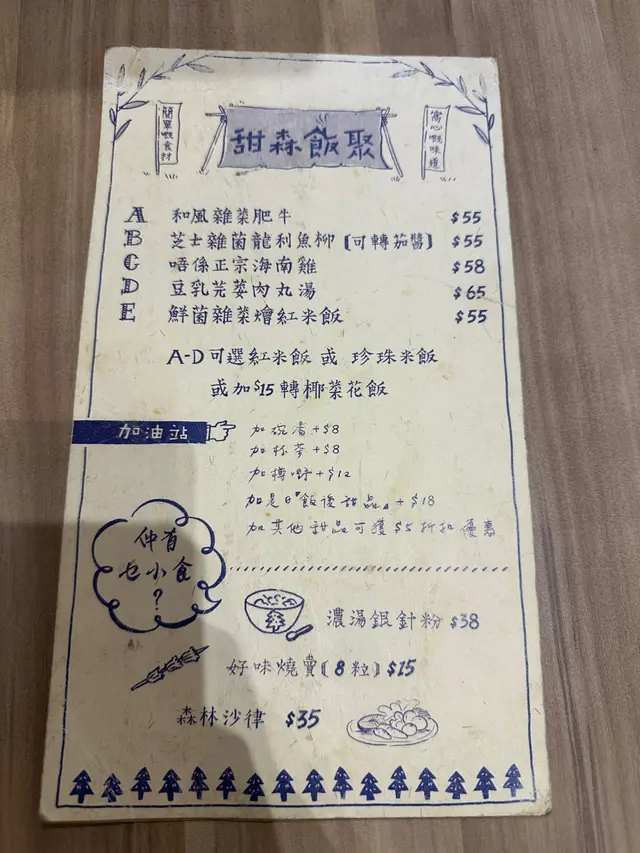 簡單嘅食材
甜森飯聚
窩心嘅味道
A 和風雜菜肥牛 $55
B 芝士雜菌龍利魚柳 (可轉茄醬) $55
C 唔係正宗海南雞 $58
D 豆乳芫荽肉丸湯 $65
E 鮮菌雜菜燴紅米飯 $55
A-D 可選紅米飯 或 珍珠米飯
或加$15 轉椰菜花飯
加油站
加碗湯 +$8
加杯茶 +$8
加樽嘢 +$12
加是日"飯後甜品" +$18
加其他甜品可獲 $5 折扣優惠
仲有
乜小食
?
濃湯銀針粉 $38
好味燒賣 (8粒) $15
森林沙律 $35